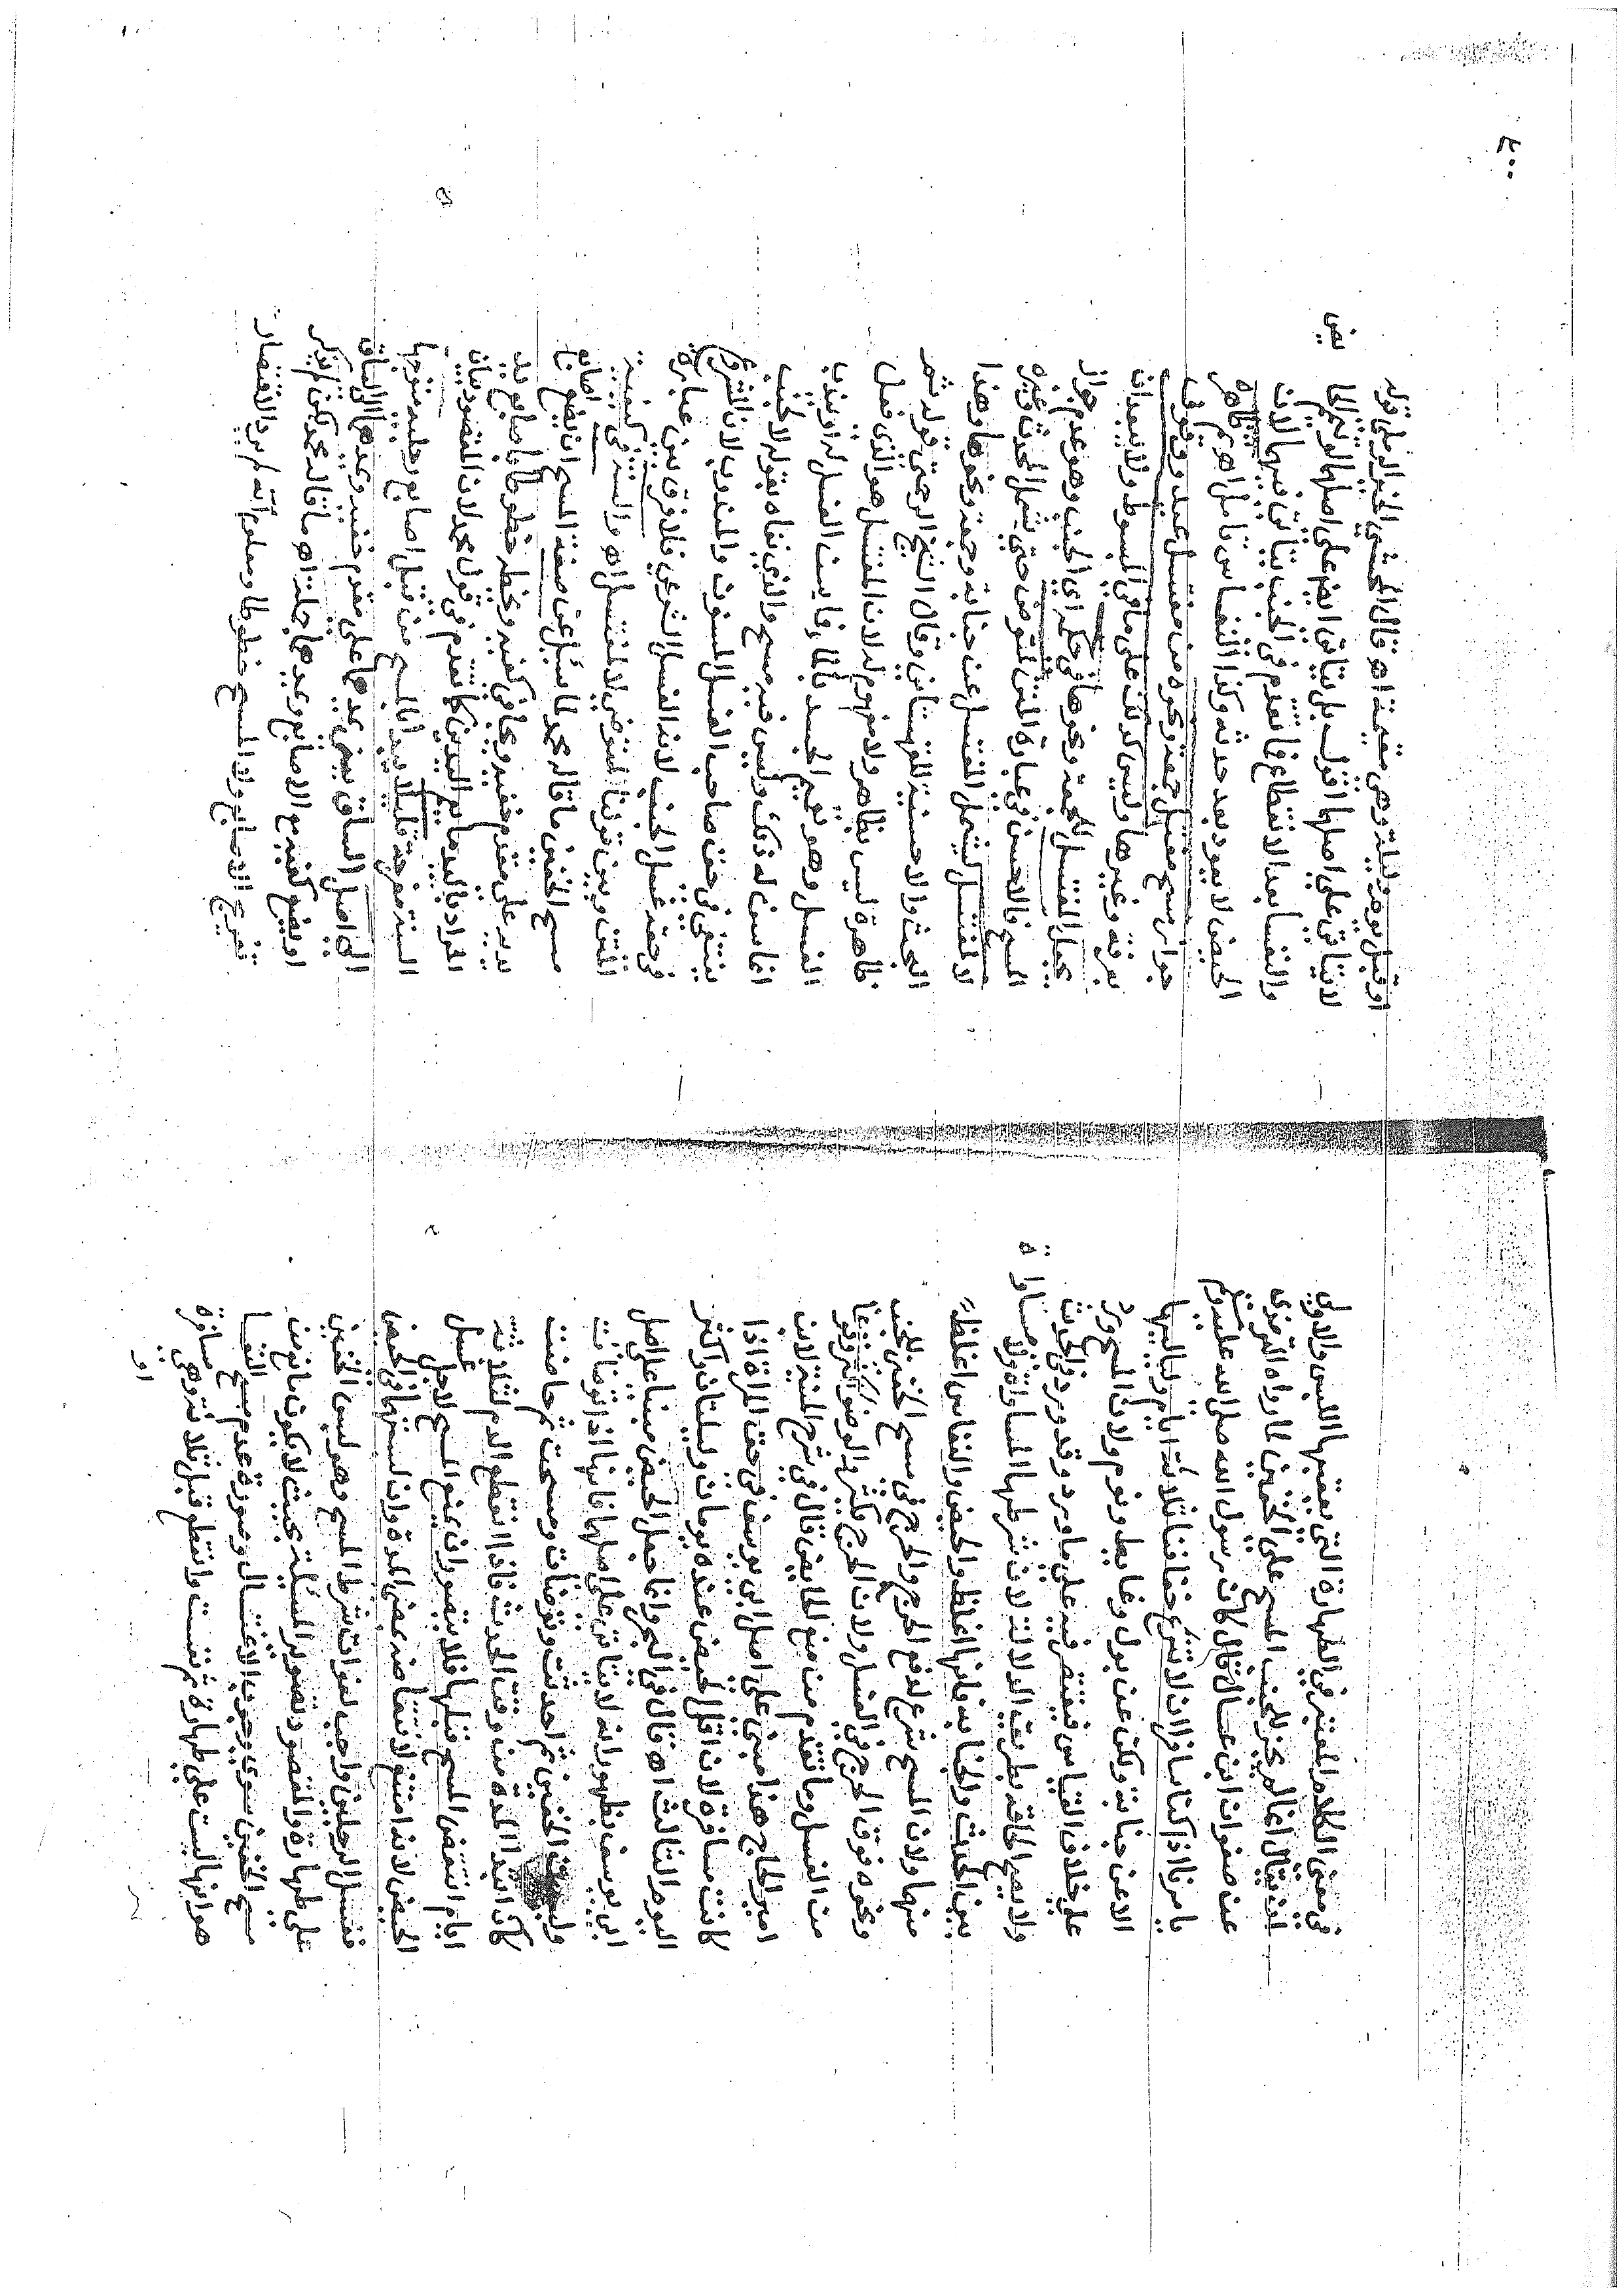 في معنى الكلام المعتبر في الطهارة التي يعقبها اللبس والاولى
ان يقال انما لم يجز للجنب المسح على الخفين لما رواه الترمذي
عن صفوان ابن عسال قال كان رسول الله صلى الله عليه وسلم
يامرنا اذا كنا سفرا ان لا ننزع خفافنا ثلاثة ايام ولياليها
الا عن جنابة ولكن عن بول وغايط ونوم ولان المسح ورد
على خلاف القياس فيقتصر فيه على ما ورد وقد ورد في الحدث
ولا يصح الحاقه بطريق الدلالة لان شرطها المساواة ولا مساواة
بين الحدث والجنابة فانها اغلظ والحيض والنفاس اغلظ
منها ولان المسح شرع لدفع الحرج والحرج في مسح الخف للجنب
ونحوه فوق الحرج في الغسل ولان الحرج يكثر بالوضوء لكثرة
من الغسل وما تقدم من منع الحايض قال في شرح المنية لابن
امير الحاج هذا مبني على اصل ابي يوسف في حق المراة اذا
كانت مسافرة لان اقل الحيض عنده يومان وليلتان واكثر
اليوم الثالث اه قال في البحر وانما جعل الحيض مبنيا على اصل
ابي يوسف لظهور انه لا يتاتى على اصلهما فانها اذا توضات
ولبست الخفين ثم احدثت وتوضات ومسحت ثم حاضت
كان ابتدا المدة من وقت الحدث فاذا انقطع الدم لثلاثة
ايام انتقض المسح قبلها فلا يتصور ان يمنع المسح لاجل غسل
الحيض لانه امتنع لانتقاضه بمضي المدة وان لبستهما في الحيض
فغسل الرجلين واجب لفوات شرط المسح وهو لبس الخفين
على طهارة والمقصود تصوير المسئلة بحيث لا يكون مانع من
مسح الخفين سوى وجوب الاغتسال وصورة عدم مسح النفسا
هو انها لبست على طهارة ثم نفست وانقطع قبل ثلاثة وهي مسافرة
او
او قبل يوم وليلة وهي مقيمة اه قال المحشي الخير الرملي قوله
لا يتاتى على اصلهما اقول بل يتاتى ايضا على اصلهما لو تيمم الحايض
والنفسا بعد الانقطاع فما تقدم في الجنب يتاتى فيهما لان
الحيض لا يعود بعد حدثه وكذا النفاس تامل اه ثم ظاهره
جواز مسح مغتسل جمعة ونحوه من مغتسل عيد ووقوف
بعرفة وغيرها وليس كذلك على ما في المبسوط ولا يبعد ان
يجعل المغتسل لجمعة ونحوها في حكم الجنب وهو عدم جواز
المسح فالاحسن في عبارة المتن لمتوضئ حتى يشمل المحدث وغيره
لا لمغتسل ليشمل المغتسل عن جنابة وجمعة ونحوها وهذا
البحث والاحسنية للقهستاني وقال الشيخ الرحمتي قوله ثم
ظاهره ليس بظاهر ولا مفهوم له لان المغتسل هو الذي فعل
الغسل وهو تعميم الجسد بالماء وما يسن الغسل له او يندب
انما سن له ذلك وليس فيه مسح والذي نفاه بقوله لا لجنب
ينتفي في حق صاحب الغسل المسنون والمندوب لان المشروع
في حقه غسل الجنب لانه الغسل الشرعي فلا فرق بين عبارة
المتن وبين قولنا لمتوضئ لا لمغتسل اه والسنة في كيفية
مسح الخفين ما قاله محمد لما سئل عن صفة المسح ان يضع اصابع
يديه على مقدم خفيه ويجافي كفيه ويخط خطوطا باصابع يد
المراد باليد ما يعم اليدين كما تقدم في قول محمد لان المقصود بيان
السنة مفرجة قليلا ويبدا بالمسح من قبل اصابع رجليه متوجها
الى اصل الساق يعني يمدها على مقدم خفيه ويمدها الى الساق
او يضع كفيه مع الاصابع ويمدها جملة اه ما قاله محمد لكن لم يذكر
تفريج الاصابع ولا المسح خطوطا ومعلوم انه لم يرد الاقتصار